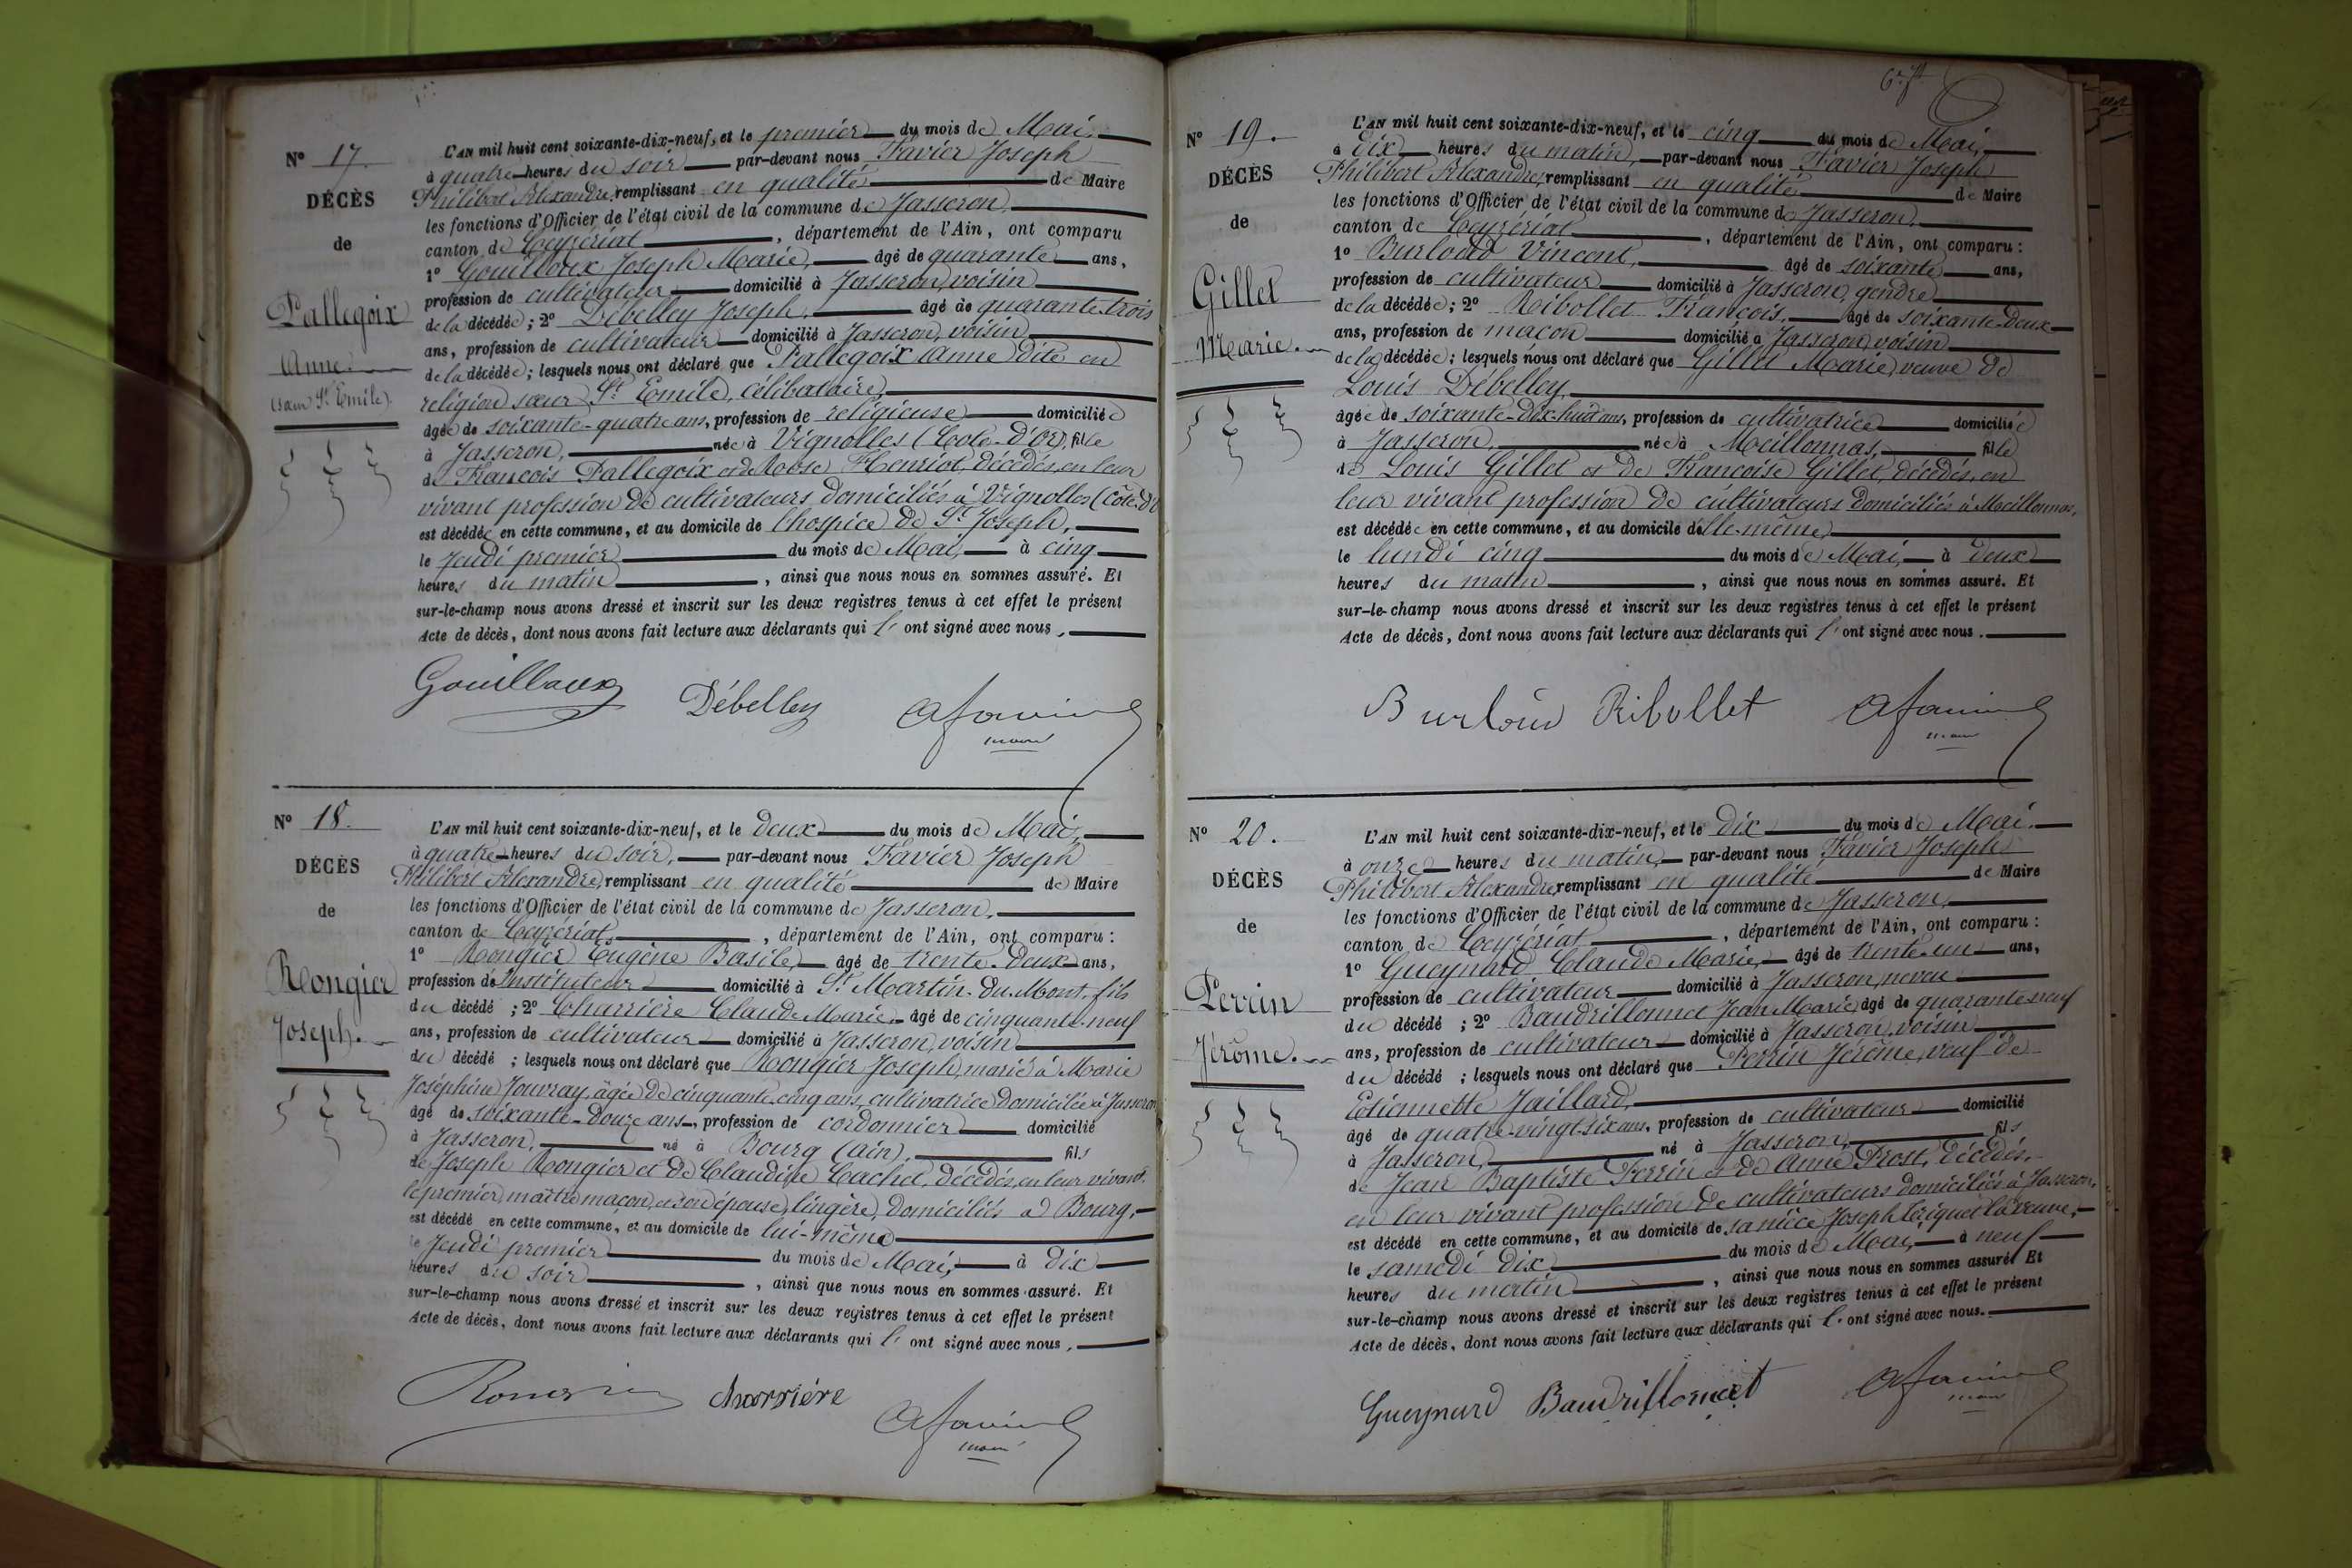 N° 17.
DÉCÈS
de
Pallegoix
Anne.
(sœur St Emile).
L'AN mil huit cent soixante-dix-neuf, et le premier du mois de Mai,
à quatre heures du soir par-devant nous Favier Joseph
Philibert Alexandre, remplissant en qualité de Maire
les fonctions d'Officier de l'état civil de la commune de Jasseron,
canton de Ceyzériat, département de l'Ain, ont comparu
1° Gouilloux Joseph Marie, âgé de quarante ans,
profession de cultivateur domicilié à Jasseron, voisin
de la décédée; 2° Débelley Joseph, âgé de quarante-trois
ans, profession de cultivateur domicilié à Jasseron, voisin
de la décédée; lesquels nous ont déclaré que Pallegoix Anne dite en
religion sœur St Emile, célibataire,
âgée de soixante-quatre ans, profession de religieuse domiciliée
à Jasseron, née à Vignolles (Cote-D'Or), fille
de François Pallegoix et de Rose Henriot, décédés, en leur
vivant profession de cultivateurs domiciliés à Vignolles (Côte-d'O
est décédée en cette commune, et au domicile de l'hospice de St Joseph,
le Jeudi premier du mois de Mai, à cinq
heures du matin, ainsi que nous nous en sommes assuré. Et
sur-le-champ nous avons dressé et inscrit sur les deux registres tenus à cet effet le présent
Acte de décès, dont nous avons fait lecture aux déclarants qui l' ont signé avec nous,
Gouilloux Débelley AFavier
maire
N° 18.
DÉCÈS
de
Rongier
Joseph.
L'AN mil huit cent soixante-dix-neuf, et le deux du mois de Mai,
à quatre heures du soir, par-devant nous Favier Joseph
Philibert Alexandre, remplissant en qualité de Maire
les fonctions d'Officier de l'état civil de la commune de Jasseron,
canton de Ceyzériat, département de l'Ain, ont comparu:
1° Rongier Eugène Basile, âgé de trente-deux ans,
profession de Instituteur domicilié à St Martin-du-Mont, fils
du décédé; 2° Charrière Claude Marie, âgé de cinquante-neuf
ans, profession de cultivateur domicilié à Jasseron, voisin
du décédé; lesquels nous ont déclaré que Rongier Joseph, marié à Marie
Joséphine Jouvray, âgée de cinquante-cinq ans, cultivatrice domiciliée à Jasseron
âgé de soixante-douze ans, profession de cordonnier domicilié
à Jasseron, né à Bourg (ain), fils
de Joseph Rongier et de Claudine Cachet, décédés, en leur vivant,
le premier, maître maçon, et son épouse, lingère, domiciliés à Bourg,
est décédé en cette commune, et au domicile de lui-même
le Jeudi premier du mois de Mai, à dix
heures du soir, ainsi que nous nous en sommes assuré. Et
sur-le-champ nous avons dressé et inscrit sur les deux registres tenus à cet effet le présent
Acte de décès, dont nous avons fait lecture aux déclarants qui l' ont signé avec nous,
Rongier charriére AFavier
maire
N° 19.
DÉCÈS
de
Gillet
Marie.
L'AN mil huit cent soixante-dix-neuf, et le cinq du mois de Mai,
à dix heures du matin, par-devant nous Favier Joseph
Philibert Alexandre, remplissant en qualité de Maire
les fonctions d'Officier de l'état civil de la commune de Jasseron,
canton de Ceyzériat, département de l'Ain, ont comparu:
1° Burloud Vincent, âgé de soixante ans,
profession de cultivateur domicilié à Jasseron, gendre
de la décédée; 2° Ribollet François, âgé de soixante-deux
ans, profession de maçon domicilié à Jasseron, voisin
de la décédée; lesquels nous ont déclaré que Gillet Marie, veuve de
Louis Débelley,
âgée de soixante-dix-huit ans, profession de cultivatrice domiciliée
à Jasseron, née à Meillonnas, fille
de Louis Gillet et de Françoise Gillet, décédés, en
leur vivant profession de cultivateurs domiciliés à Meillonnas,
est décédée en cette commune, et au domicile d'elle-même,
le lundi cinq du mois de Mai, à deux
heures du matin, ainsi que nous nous en sommes assuré. Et
sur-le-champ nous avons dressé et inscrit sur les deux registres tenus à cet effet le présent
Acte de décès, dont nous avons fait lecture aux déclarants qui l' ont signé avec nous.
Burloud Ribollet AFavier
maire
N° 20.
DÉCÈS
de
Perrin
Jérôme.
L'AN mil huit cent soixante-dix-neuf, et le dix du mois de Mai.
à onze heures du matin, par-devant nous Favier Joseph
Philibert Alexandre, remplissant en qualité de Maire
les fonctions d'Officier de l'état civil de la commune de Jasseron,
canton de Ceyzériat, département de l'Ain, ont comparu:
1° Gueynard Claude Marie, âgé de trente-un ans,
profession de cultivateur domicilié à Jasseron, neveu
du décédé; 2° Baudrillonnet Jean Marie, âgé de quarante-neuf
ans, profession de cultivateur domicilié à Jasseron, voisin
du décédé; lesquels nous ont déclaré que Perrin Jérôme, veuf de
Etiennette Jaillard,
âgé de quatre-vingt-six ans, profession de cultivateur domicilié
à Jasseron, né à Jasseron, fils
de Jean Baptiste Perrin et de Anne Prost, décédés,
en leur vivant profession de cultivateurs domiciliés à Jasseron,
est décédé en cette commune, et au domicile de sa nièce Joseph la veuve,
le samedi dix du mois de Mai, à neuf
heures du matin, ainsi que nous nous en sommes assuré. Et
sur-le-champ nous avons dressé et inscrit sur les deux registres tenus à cet effet le présent
Acte de décès, dont nous avons fait lecture aux déclarants qui l' ont signé avec nous.
Gueynard Baudrillonnet AFavier
maire